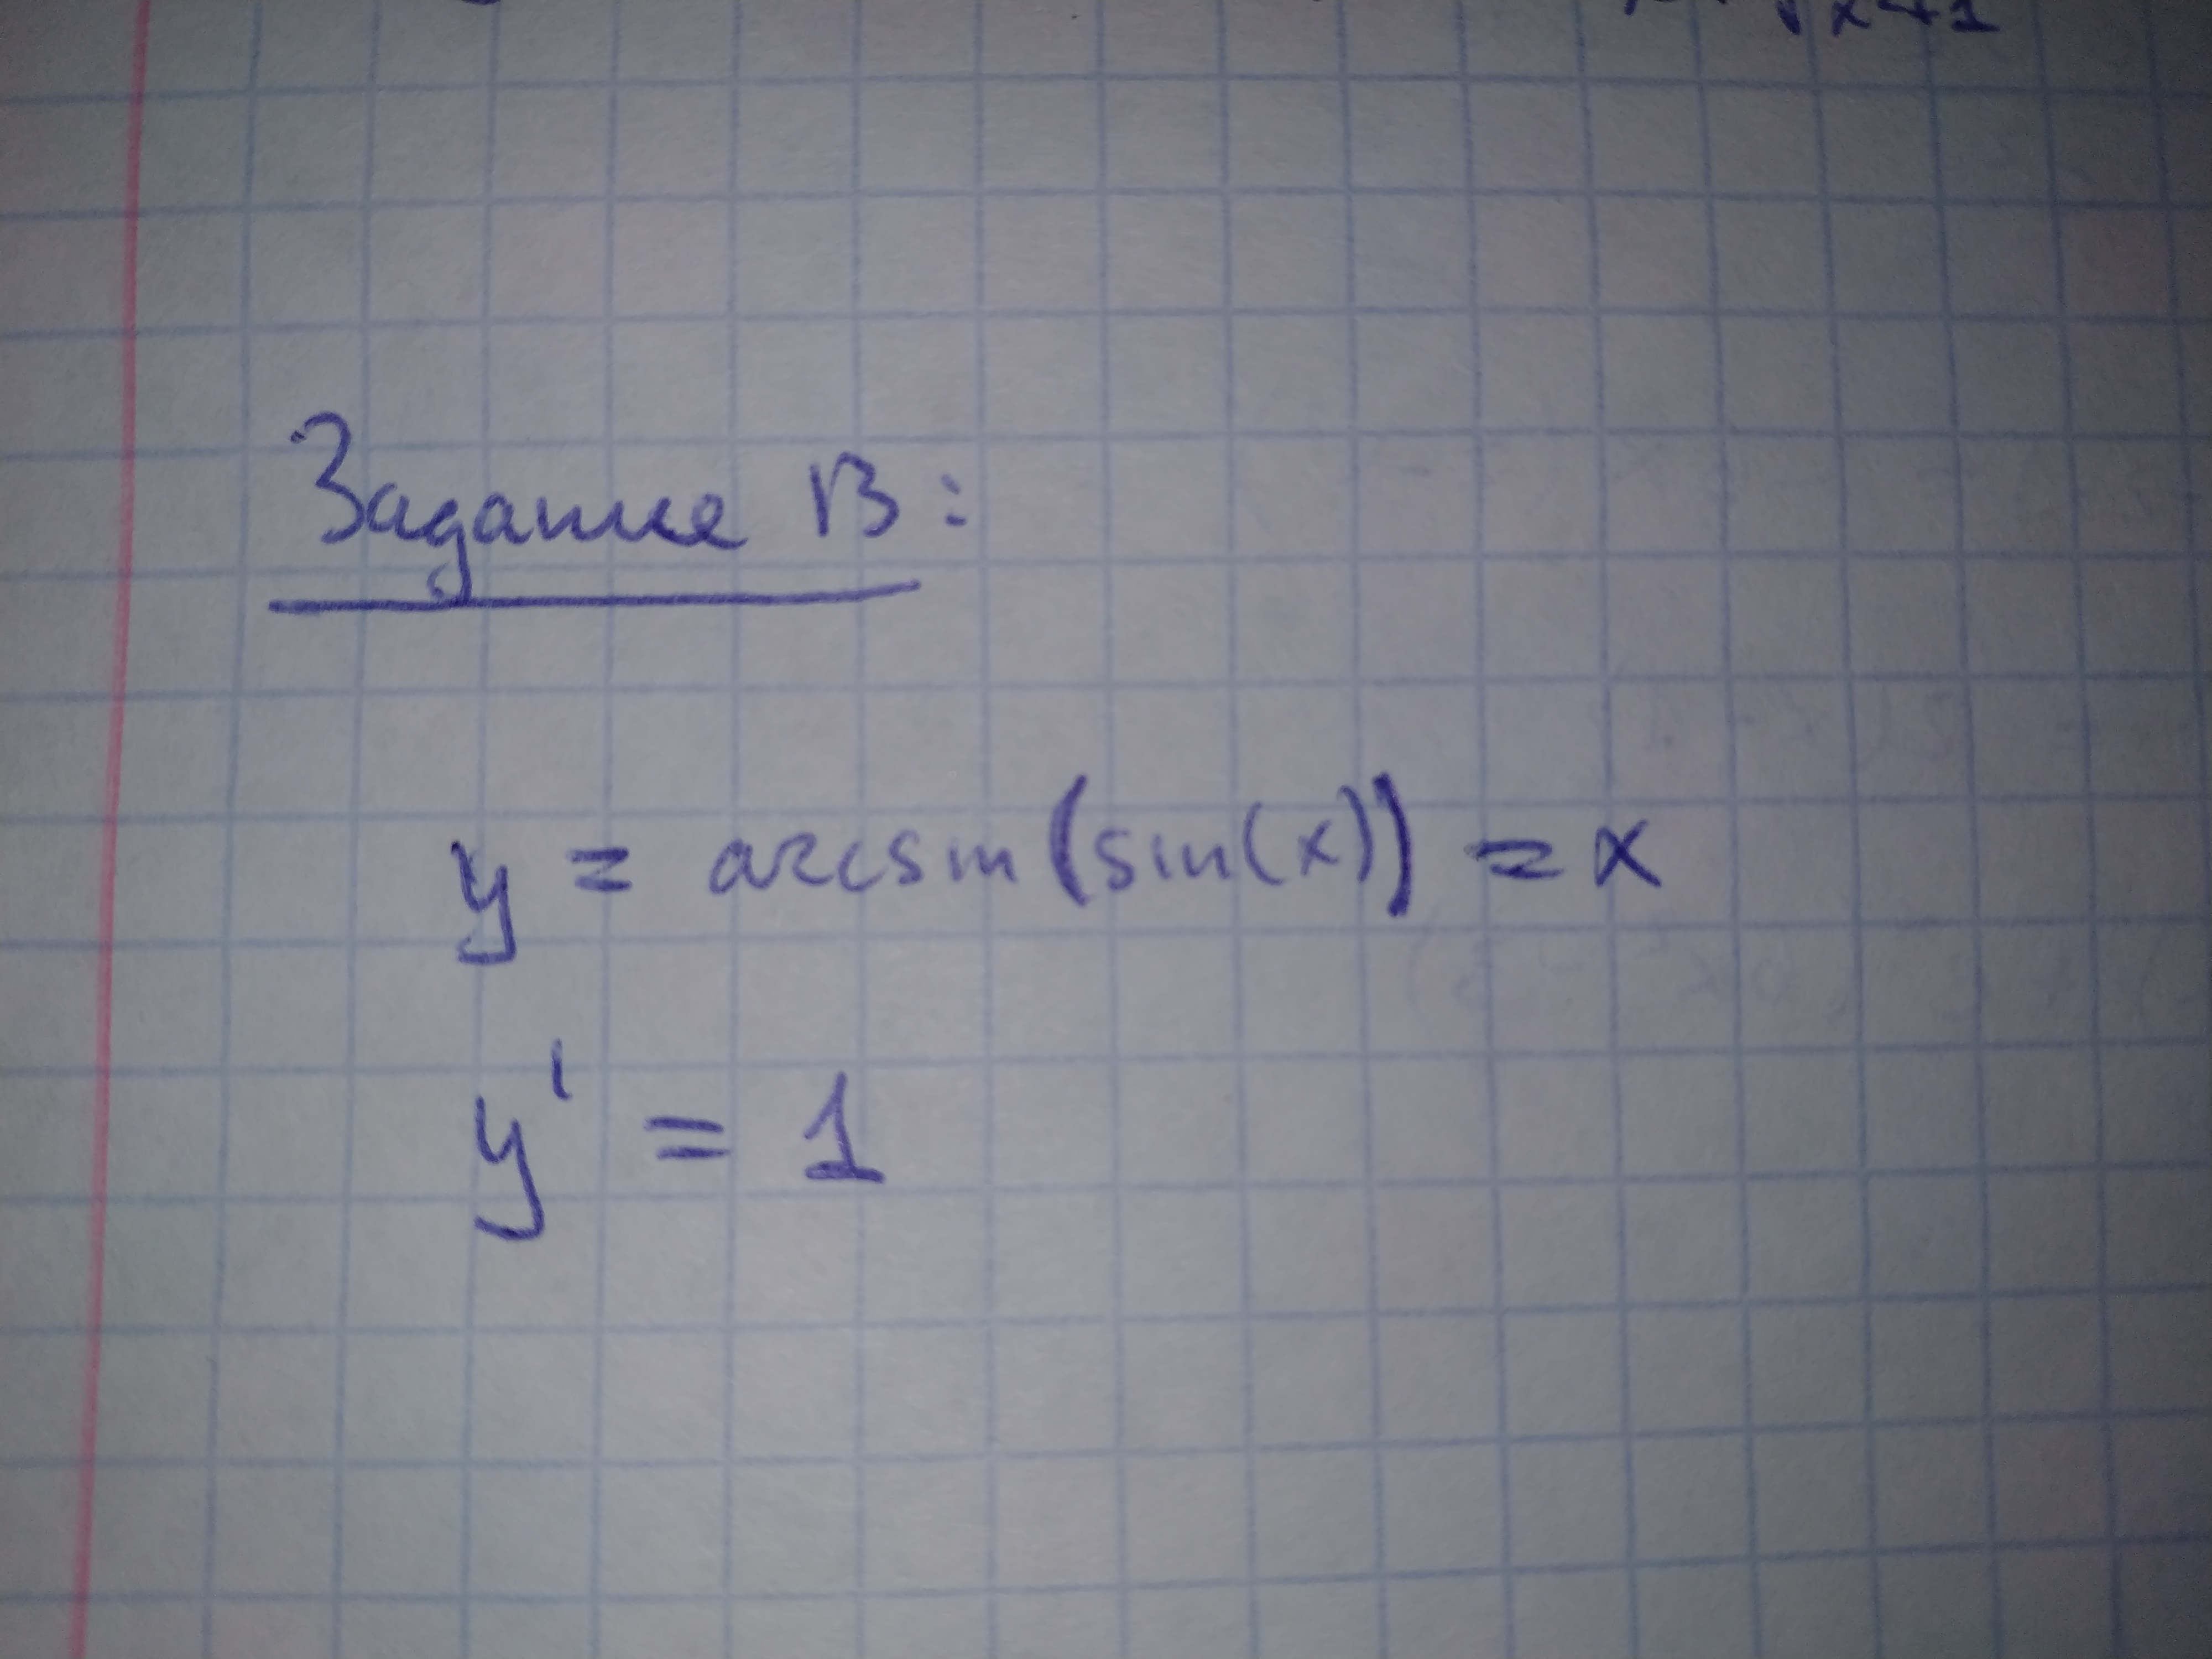 x+1
Задание B:
y = arcsin(sin(x)) = x
y' = 1